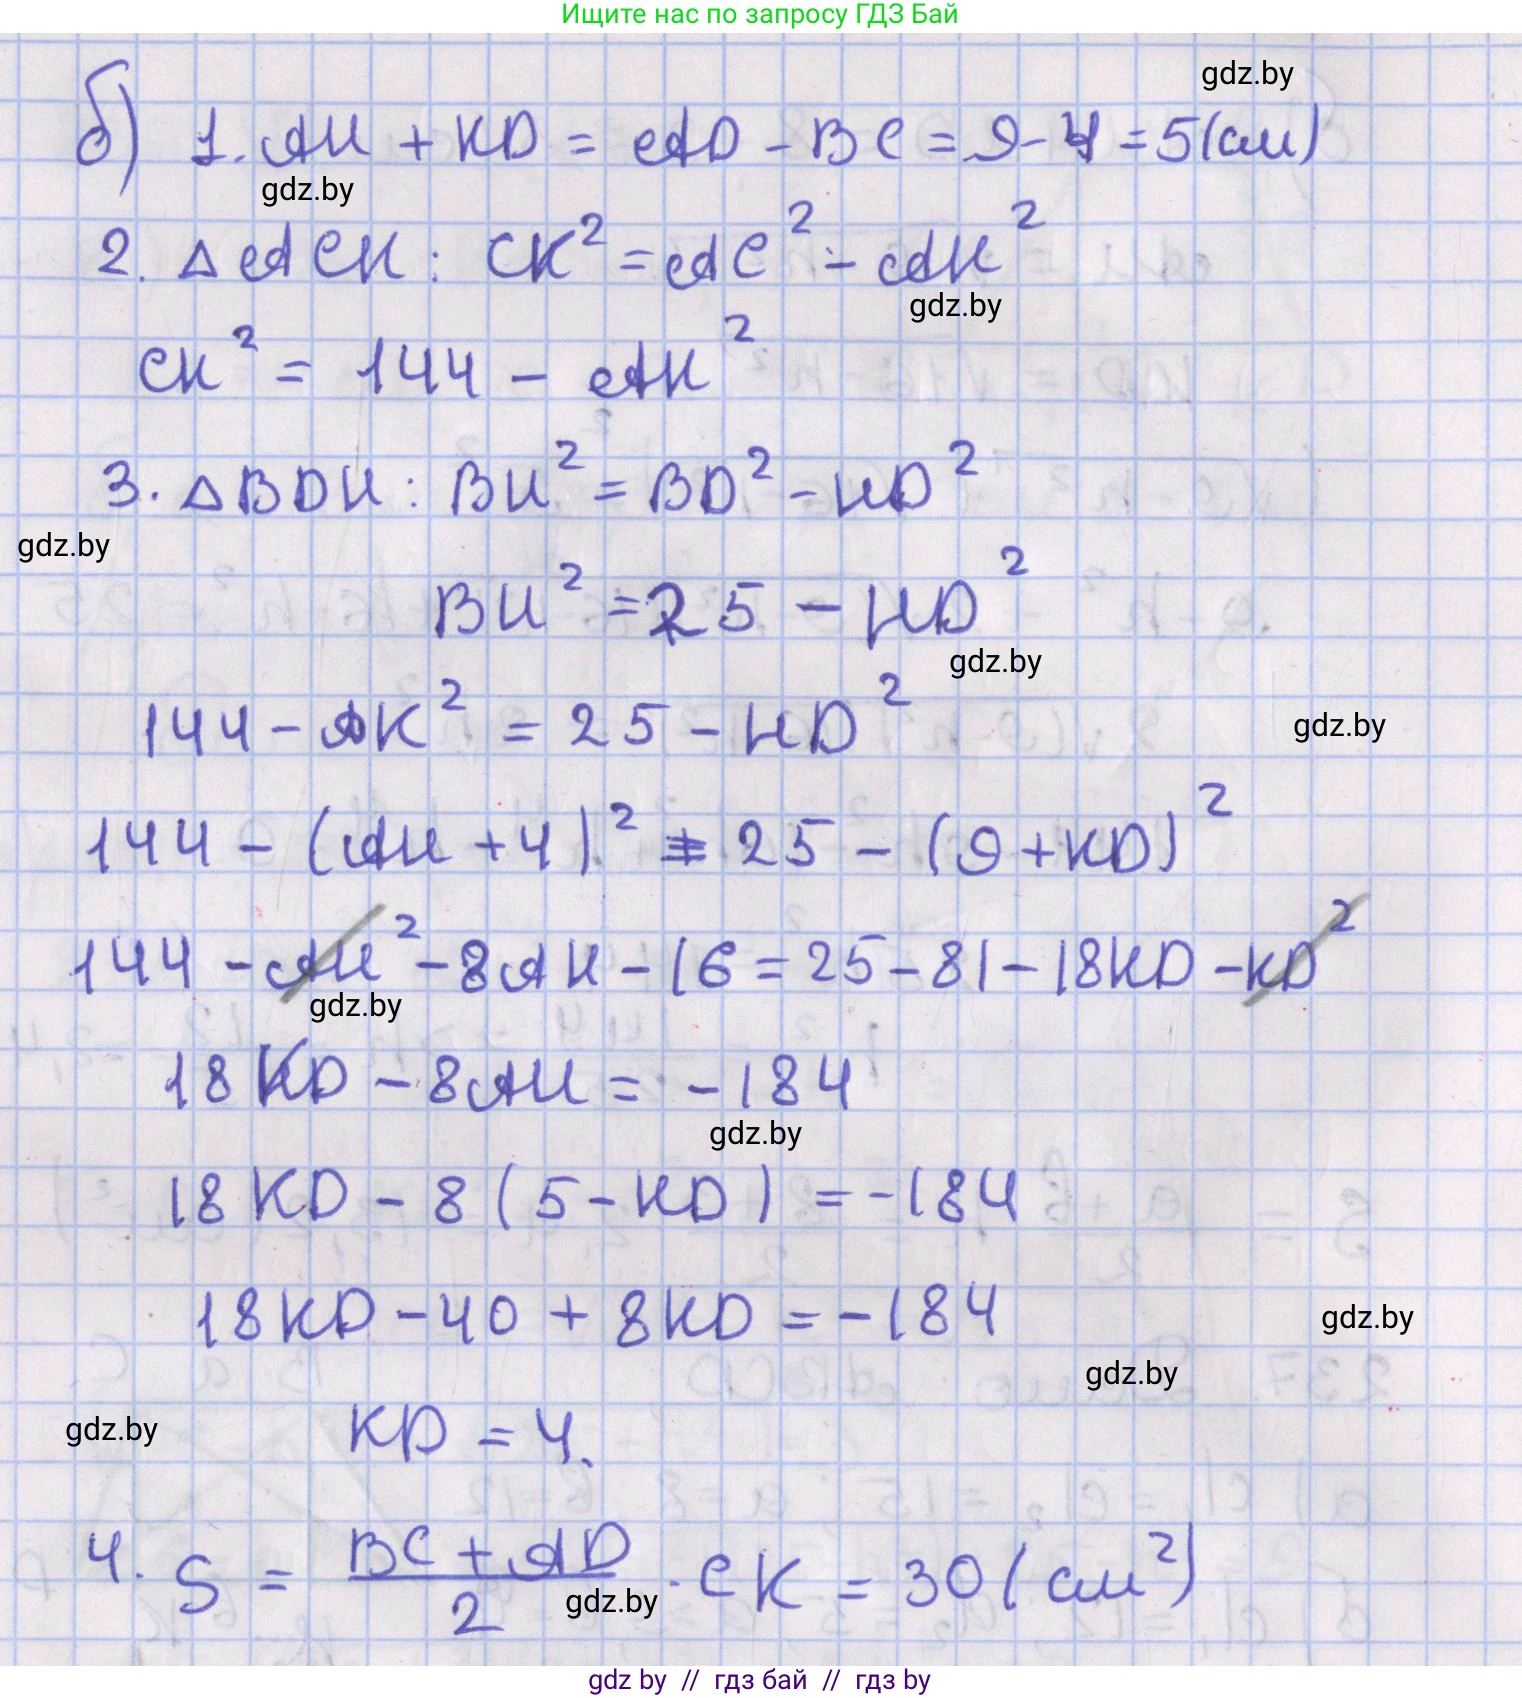 Ищите нас по запросу ГДЗ Бай
gdz.by
б) 1. AH + KD = AD - BC = 9 - 4 = 5 (см)
gdz.by
2. △ACK: CK² = AC² - AK²
gdz.by
CK² = 144 - AK²
3. △BDH: BH² = BD² - HD²
gdz.by
BH² = 25 - HD²
gdz.by
144 - AK² = 25 - HD²
gdz.by
144 - (AH + 4)² = 25 - (9 + KD)²
144 - AH² - 8AH - 16 = 25 - 81 - 18KD - KD²
gdz.by
18KD - 8AH = -184
gdz.by
18KD - 8(5 - KD) = -184
18KD - 40 + 8KD = -184
gdz.by
gdz.by
KD = 4.
gdz.by
4. S = (BC + AD)/2 · CK = 30 (см²)
gdz.by
gdz by // гдз бай // гдз by